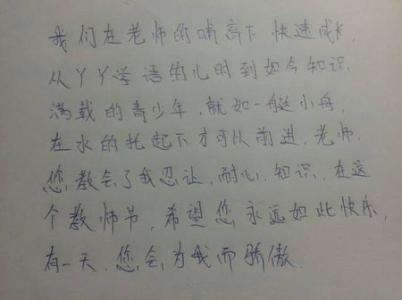 我们在老师的哺育下快速成长
从丫丫学语的儿时到如今知识
满载的青少年,就如一艇小舟,
在水的托起下才可以前进.老师.
您教会了我忍让,耐心.知识,在这
个教师节,希望您永远如此快乐,
有一天.您会为我而骄傲.